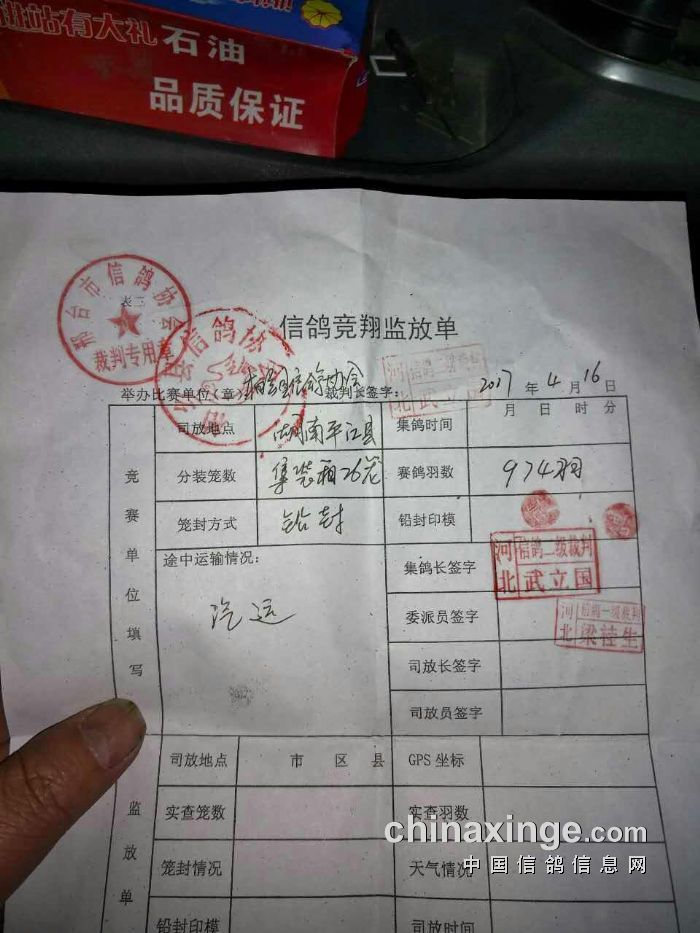 进站有大礼 石油
品质保证
邢台市信鸽协会
裁判专用章
表二
信鸽协
信鸽竞翔监放单
河北 信鸽一级裁判 武立国
举办比赛单位(章) 信鸽协会 裁判长签字: 2017年4月16日
竞赛单位填写
司放地点 湖南平江县 集鸽时间 月 日 时 分
分装笼数 集装箱26笼 赛鸽羽数 974羽
笼封方式 铅封 铅封印模
途中运输情况: 汽运
集鸽长签字 河北 信鸽二级裁判 武立国
委派员签字 河北 信鸽一级裁判 梁桂生
司放长签字
司放员签字
监放单
司放地点 市 区 县 GPS坐标
实查笼数 实查羽数
笼封情况 天气情况
铅封印模 司放时间
chinaxinge.com
中国信鸽信息网